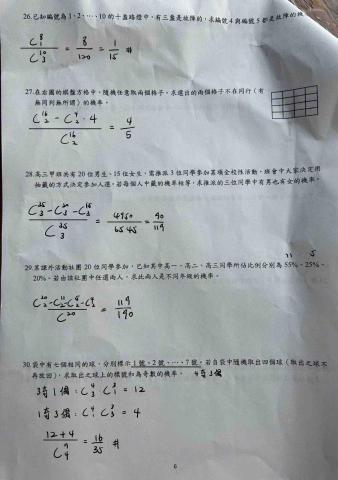 26.已知編號為 1、2、…、10 的十盞路燈中,有三盞是故障的,求編號 4 與編號 5 都是故障的機
C⁸₁ / C¹⁰₃ = 8/120 = 1/15 #
27.在右圖的棋盤方格中,隨機任意取兩個格子,求選出的兩個格子不在同行(有
無同列無所謂)的機率。
(C¹⁶₂ - C⁴₂ · 4) / C¹⁶₂ = 4/5
28.高三甲班共有 20 位男生、15 位女生,需推派 3 位同學參加某項全校性活動,班會中大家決定用
抽籤的方式決定參加人選,若每個人中籤的機率相等,求推派的三位同學中有男也有女的機率。
(C³⁵₃ - C²⁰₃ - C¹⁵₃) / C³⁵₃ = 4950/6545 = 90/119
11 5
29.某課外活動社團 20 位同學參加,已知其中高一、高二、高三同學所佔比例分別為 55%、25%、
20%。若由該社團中任選兩人,求此兩人是不同年級的機率。
(C²⁰₂ - C¹¹₂ - C⁵₂ - C⁴₂) / C²⁰ = 119/190
30.袋中有七個相同的球,分別標示 1 號、2 號、…、7 號,若自袋中隨機取出四個球(取出之球不
再放回),求取出之球上的標號和為奇數的機率。 4奇3偶
3奇1偶:C⁴₃ C³₁ = 12
1奇3偶:C⁴₁ C³₃ = 4
(12+4) / C⁷₄ = 16/35 #
6